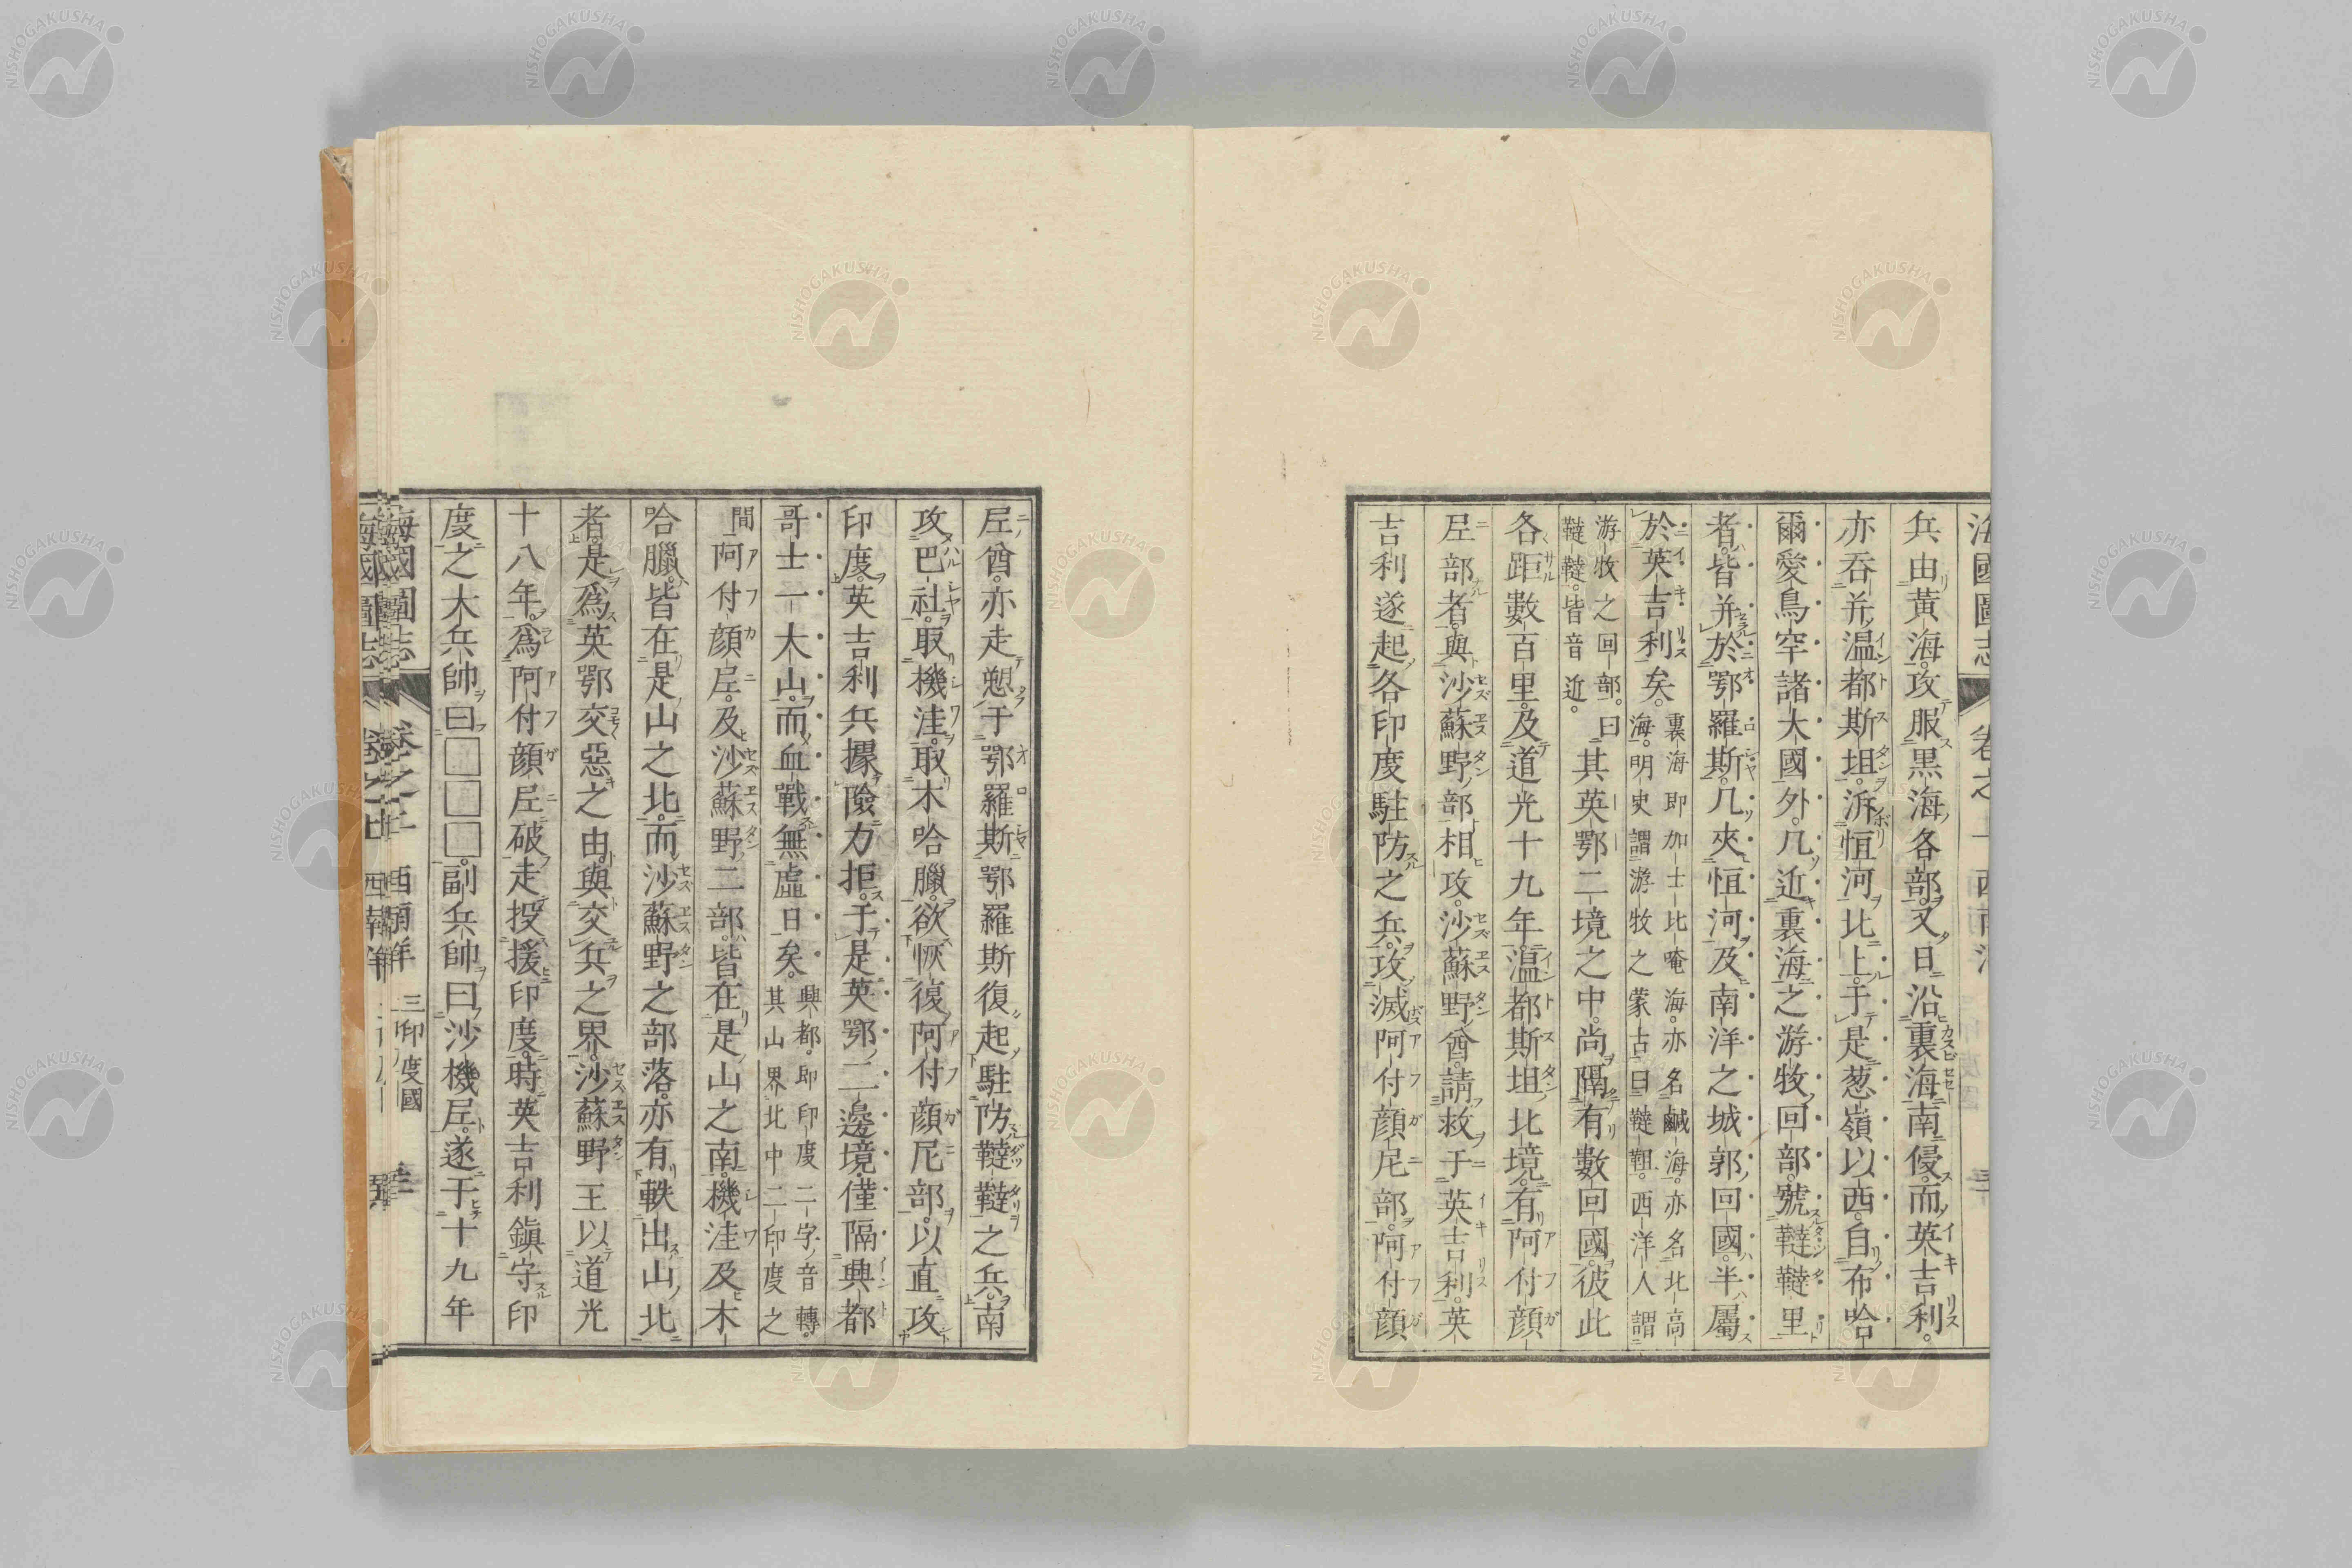 海國圖志 卷之
兵由黃海。攻服黒海各部。又日沿裏海南侵。而英吉利。
亦吞并温都斯坦。泝恒河比上。于是葱嶺以西。自布哈
爾愛烏罕諸大國外。凡近裏海之游牧回部。號韃韃里
者。皆并於鄂羅斯。凡夾恒河及南洋之城郭回國。半屬
於英吉利矣。裏海即加士比唵海。亦名鹹海。亦名北高海。明史謂游牧之蒙古曰韃靼。西洋人謂
游牧之回部。曰韃韃。皆音近。其英鄂二境之中。尚隔有數回國。彼此
各距數百里。及道光十九年。温都斯坦北境。有阿付顔
尼部者。與沙蘇野部相攻。沙蘇野酋。請救于英吉利。英
吉利遂起各印度駐防之兵。攻滅阿付顔尼部。阿付顔
尼酋。亦走愬于鄂羅斯。鄂羅斯復起駐防韃韃之兵。南
攻巴社。取機洼。取木哈臘。欲恢復阿付顔尼部。以直攻
印度。英吉利兵據險力拒。于是英鄂二邊境。僅隔興都
哥士一大山。而血戰無虚日矣。興都。即印度二字音轉。其山界北中二印度之
間 阿付顔尼。及沙蘇野二部。皆在是山之南。機洼及木
哈臘。皆在是山之北。而沙蘇野之部落。亦有軼出山北
者。是爲英鄂交惡之由。與交兵之界。沙蘇野王以道光
十八年。爲阿付顔尼破走。投援印度。時英吉利鎭守印
度之木兵帥曰□□□。副兵帥曰沙機尼。遂于十九年
海國圖志 卷之十二 西南洋 三印度國